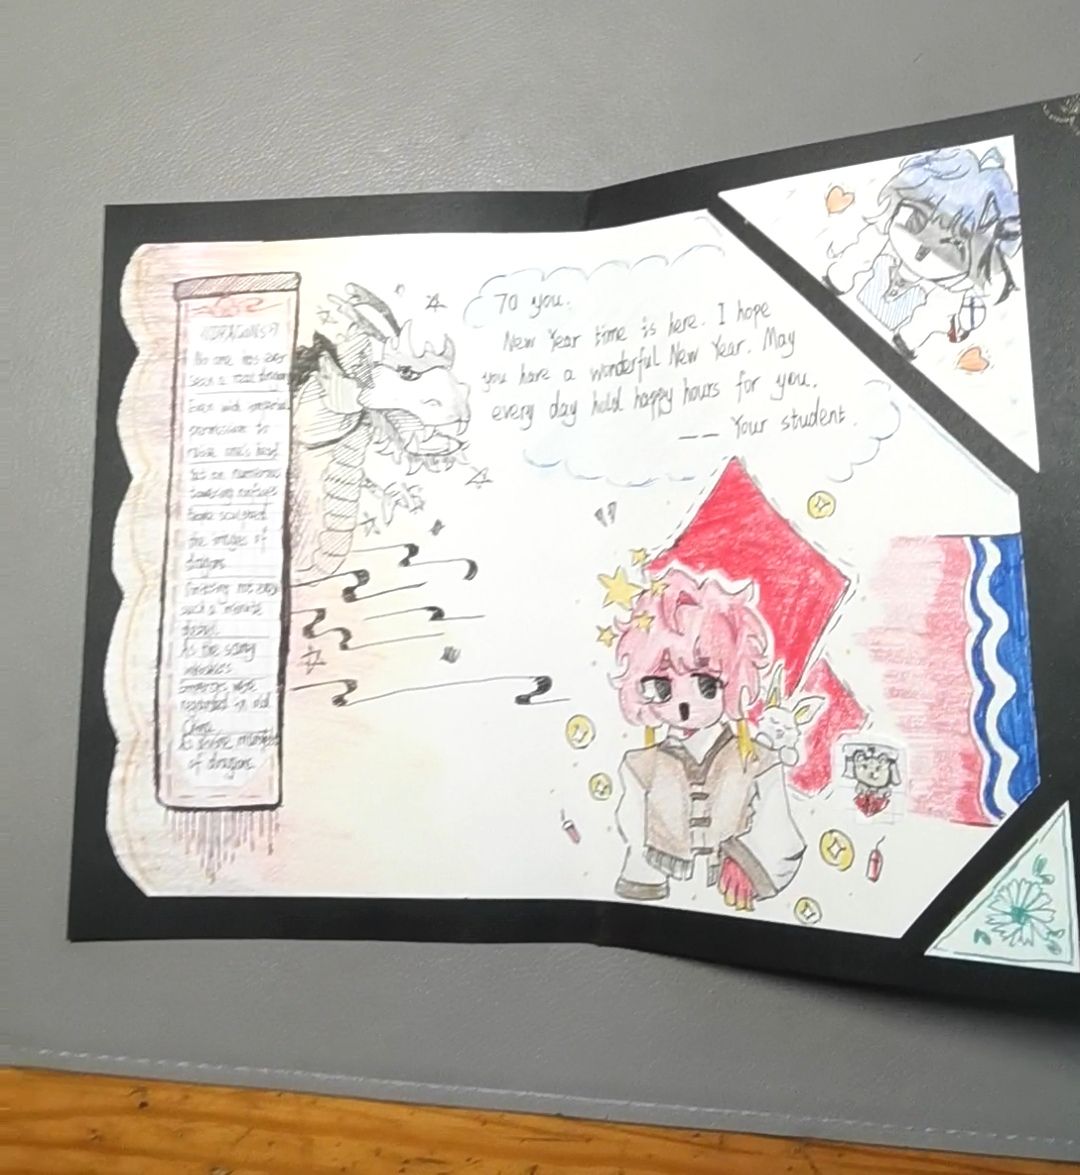 《DRAGONS》
No one has ever
seen a real dragon
Even with
permission to
raise one's head
Yet on numerous
towering
have sculpted
the images of
dragons
not easy
such a minute
detail
As the scaly
emerges were
regarded in old
China
As divine
of dragons.
To you.
New Year time is here. I hope
you have a wonderful New Year. May
every day hold happy hours for you.
—— Your student.